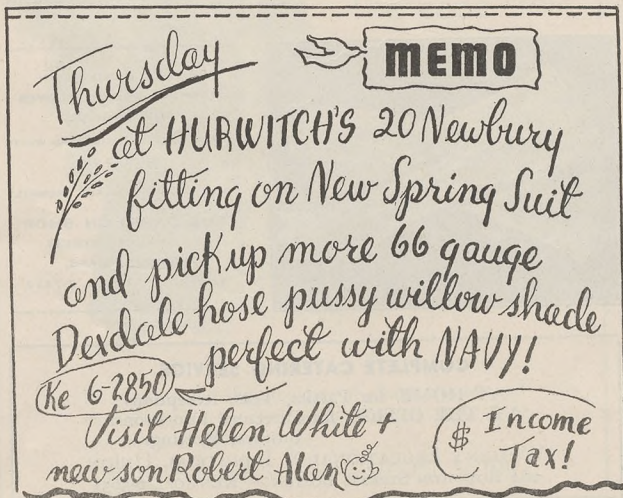 MEMO
Thursday
at HURWITCH'S 20 Newbury
fitting on New Spring Suit
and pick up more 66 gauge
Dexdale hose pussy willow shade
perfect with NAVY!
Ke 6-2850
Visit Helen White +
new son Robert Alan
$ Income
Tax!